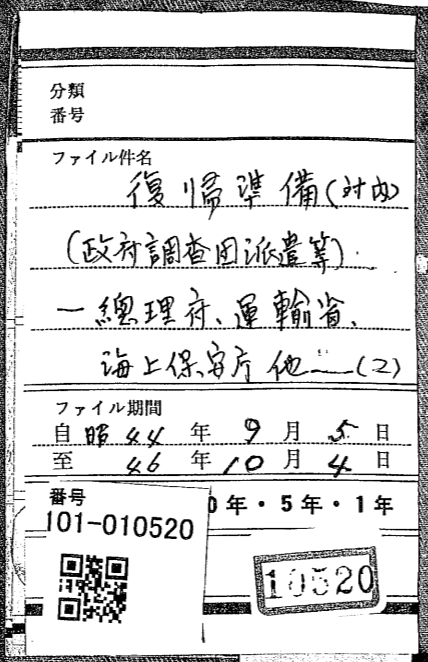 分類
番号
ファイル件名
復帰準備(対内)
(政府調査団派遣等)
一総理府、運輸省、
海上保安庁他—(2)
ファイル期間
自 昭44年9月5日
至 46年10月4日
0年・5年・1年
番号
101-010520
10520